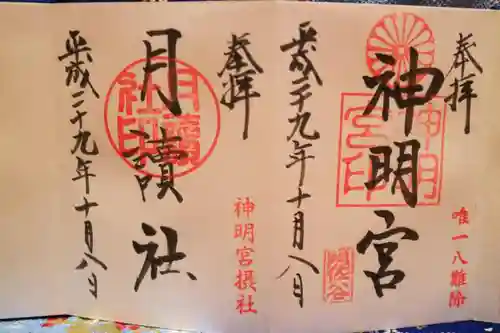 奉拝
唯一八難除
神明宮
神明宮印
平成二十九年十月八日
奉拝
神明宮摂社
月讀社
月讀社印
平成二十九年十月八日